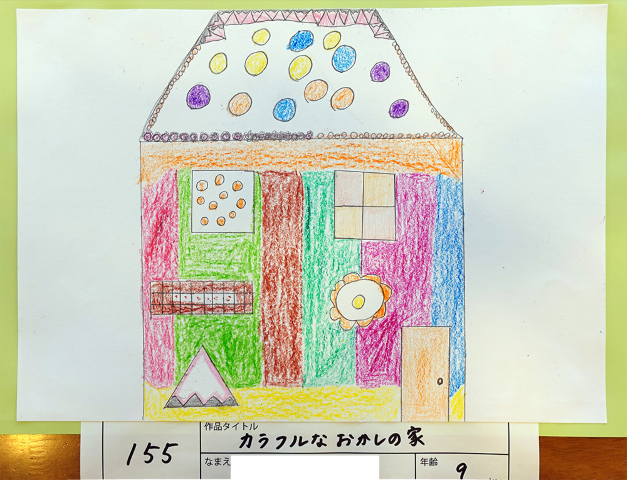 155
作品タイトル
カラフルな おかしの家
なまえ
年齢
9